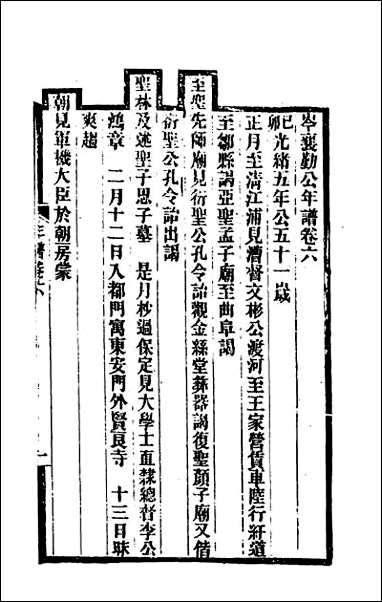 岑襄勤公年譜卷六
己卯光緒五年公五十一歲
正月至清江浦見漕督文彬公渡河至王家營賃車陸行紆道
至鄒縣謁亞聖孟子廟至曲阜謁
至聖先師廟見衍聖公孔令詒觀金絲堂彝器謁復聖顏子廟又偕
衍聖公孔令詒出謁
聖林及述聖子思子墓　是月杪過保定見大學士直隸總督李公
鴻章　二月十二日入都門寓東安門外賢良寺　十三日昧
爽趨
朝見軍機大臣於朝房蒙